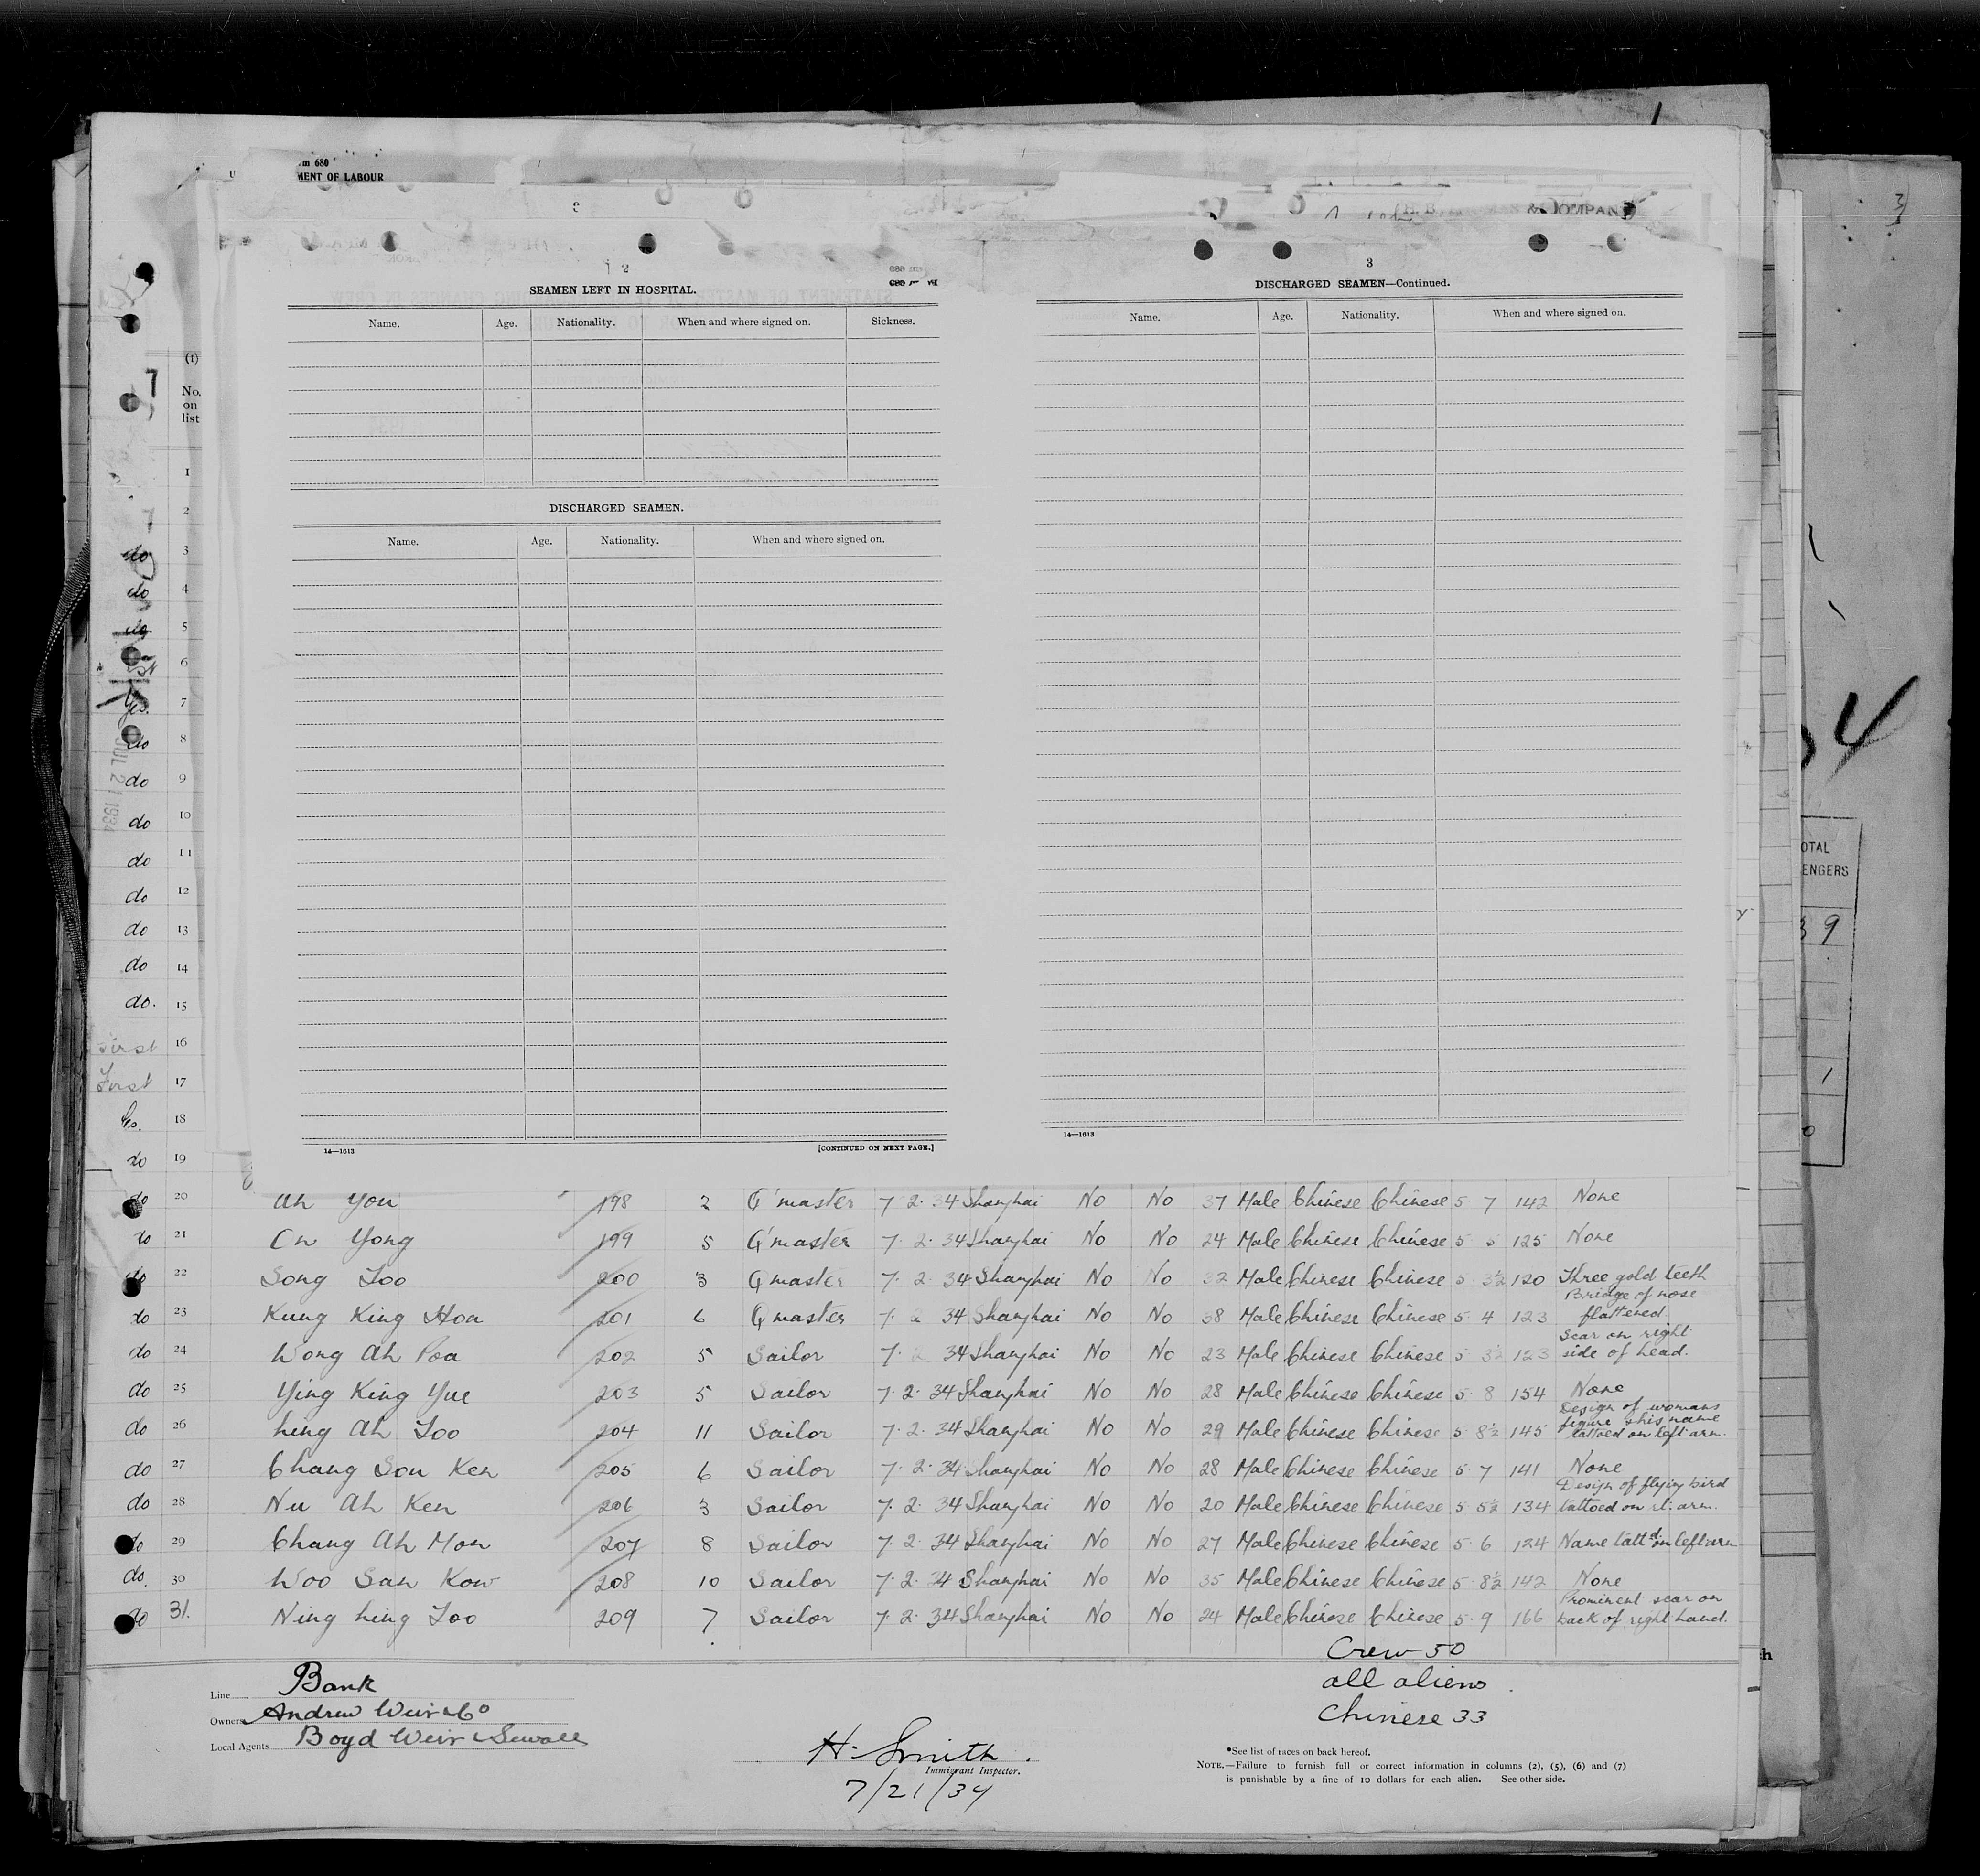 m 680
MENT OF LABOUR
& COMPANY
2
SEAMEN LEFT IN HOSPITAL.
Name. Age. Nationality. When and where signed on. Sickness.
DISCHARGED SEAMEN.
Name. Age. Nationality. When and where signed on.
14—1613 [CONTINUED ON NEXT PAGE.]
3
DISCHARGED SEAMEN—Continued.
Name. Age. Nationality. When and where signed on.
14—1613
(1)
No.
on
list
1
2
do 3
do 4
do 5
6
Yes. 7
do 8
do 9
do 10
do 11
do 12
do 13
do 14
do. 15
First 16
First 17
18
do 19
JUL 21 1934
do 20 Ah You 198 2 Q'master 7 2. 34 Shanghai No No 37 Male Chinese Chinese 5 7 142 None
do 21 On Yong 199 5 Q'master 7. 2. 34 Shanghai No No 24 Male Chinese Chinese 5 5 125 None
do 22 Song Zoo 200 3 Qmaster 7. 2. 34 Shanghai No No 32 Male Chinese Chinese 5 3½ 120 Three gold teeth
do 23 Kung King Hoa 201 6 Qmaster 7. 2 34 Shanghai No No 38 Male Chinese Chinese 5 4 123 Bridge of nose flattened
do 24 Wong Ah Poa 202 5 Sailor 7. 2 34 Shanghai No No 23 Male Chinese Chinese 5 3½ 123 Scar on right side of head.
do 25 Ying King Yue 203 5 Sailor 7. 2. 34 Shanghai No No 28 Male Chinese Chinese 5 8 154 None
do 26 Ling Ah Zoo 204 11 Sailor 7. 2. 34 Shanghai No No 29 Male Chinese Chinese 5 8½ 145 Design of womans figure & his name tattoed on left arm.
do 27 Chang Sou Ken 205 6 Sailor 7. 2. 34 Shanghai No No 28 Male Chinese Chinese 5 7 141 None
do 28 Nu Ah Ken 206 3 Sailor 7. 2. 34 Shanghai No No 20 Male Chinese Chinese 5 5½ 134 Design of flying bird tattoed on rt. arm.
do 29 Chang Ah Mon 207 8 Sailor 7. 2. 34 Shanghai No No 27 Male Chinese Chinese 5. 6 134 Name tattd on left arm
do. 30 Woo San Kow 208 10 Sailor 7. 2. 34 Shanghai No No 35 Male Chinese Chinese 5. 8½ 142 None
do 31. Ning Ling Zoo 209 7 Sailor 7. 2. 34 Shanghai No No 24 Male Chinese Chinese 5. 9 166 Prominent scar on back of right hand.
Crew 50
all aliens
Chinese 33
Line Bank
Owners Andrew Weir & Co
Local Agents Boyd Weir & Sewell
H. Smith
Immigrant Inspector.
7/21/34
*See list of races on back hereof.
NOTE.—Failure to furnish full or correct information in columns (2), (5), (6) and (7)
is punishable by a fine of 10 dollars for each alien. See other side.
OTAL
ENGERS
39
1